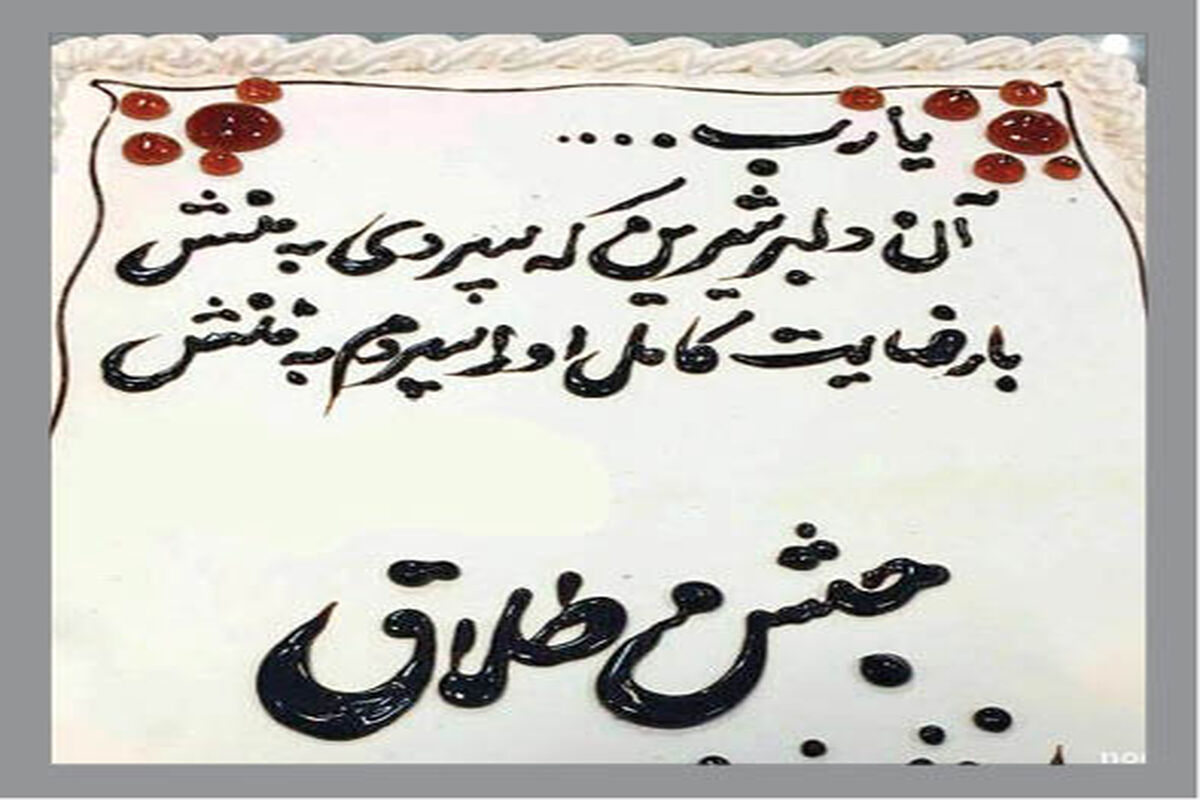 یا رب ....
آن دلبر شیرین که سپردی به منش
با رضایت کامل او را سپردم به ننش
جشن طلاق